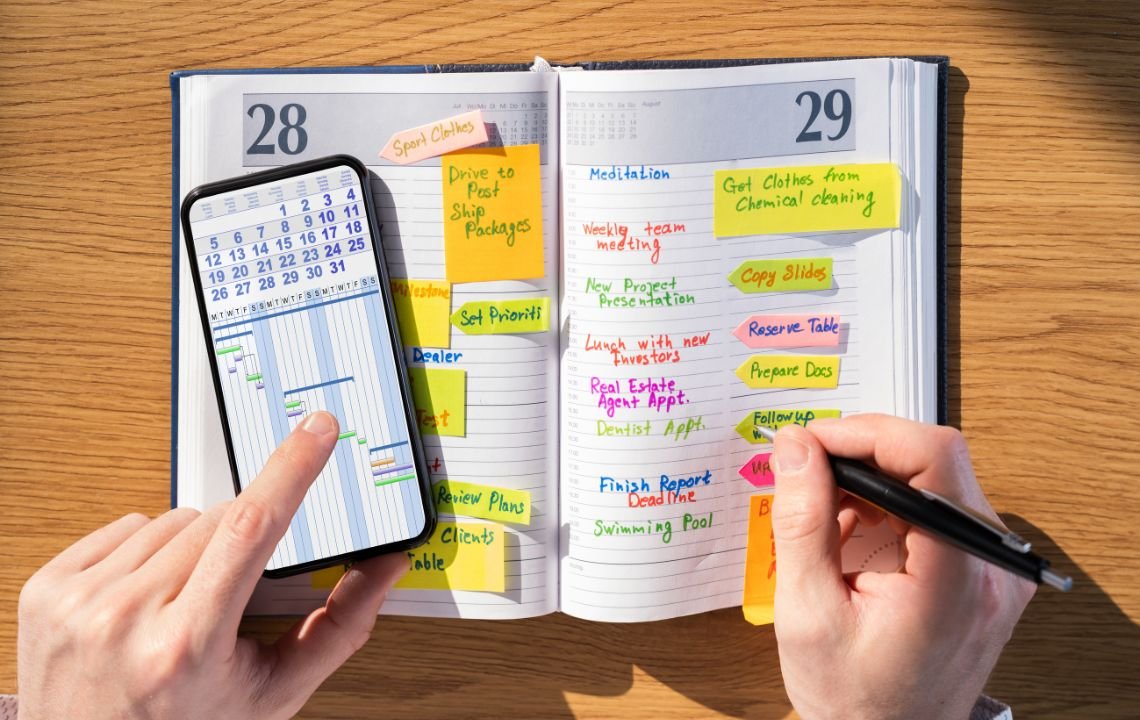 28
Sport Clothes
Drive to
Post
Ship
Packages
Milestone
Set Prioriti
Dealer
Test
Review Plans
Clients
Table
1 2 3 4
5 6 7 8 9 10 11
12 13 14 15 16 17 18
19 20 21 22 23 24 25
26 27 28 29 30 31
M T W T F S S M T W T F S S M T W T F S S
August
29
Meditation
Get Clothes from
Chemical cleaning
Weekly team
meeting
Copy Slides
New Project
Presentation
Reserve Table
Lunch with new
Investors
Prepare Docs
Real Estate
Agent Appt.
Follow up
Dentist Appt.
Finish Report
Deadline
Swimming Pool